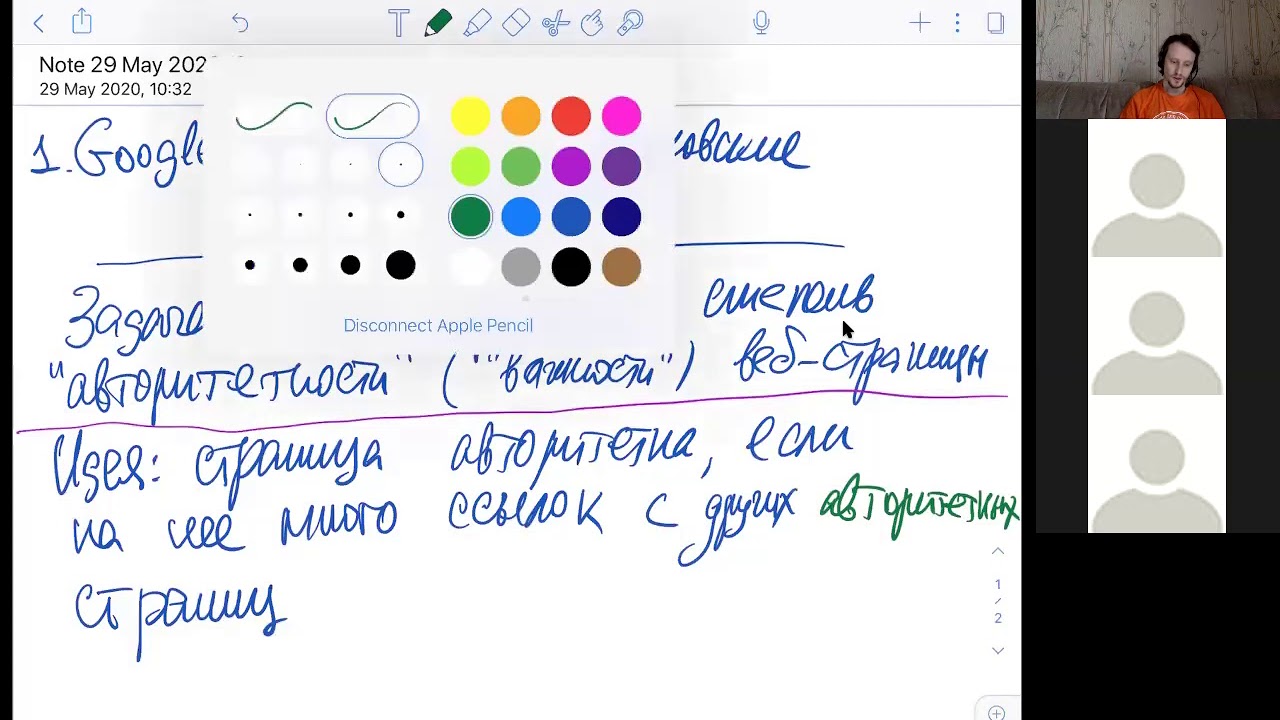 Note 29 May 202
29 May 2020, 10:32
1. Google
Disconnect Apple Pencil
Задача степень
"авторитетности" ("важности") веб-страницы
Идея: страница авторитетна, если
на нее много ссылок с других авторитетных
страниц
1
2